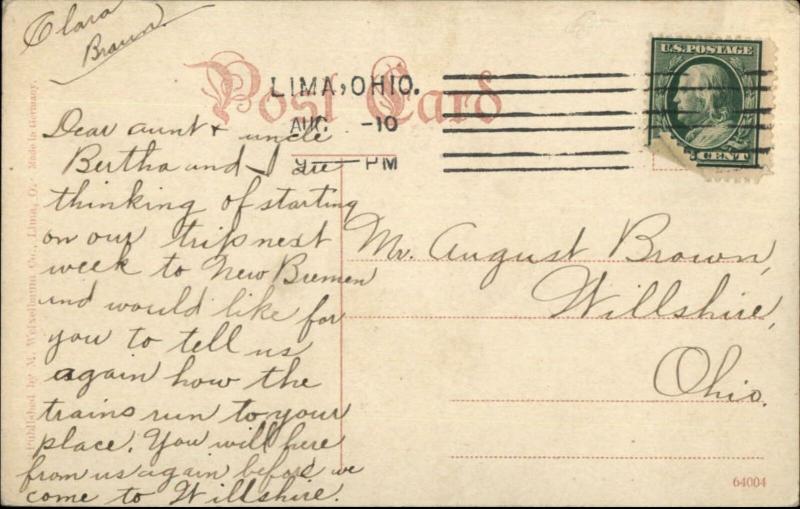 Clara
Braun
Post Card
LIMA, OHIO.
AUG -10
9 — PM
U.S. POSTAGE
CENT
Dear aunt & uncle
Bertha and I are
thinking of starting
on our trip next
week to New Bremen
and would like for
you to tell us
again how the
trains run to your
place. You will here
from us again before we
come to Willshire.
Mr. August Brown,
Willshire,
Ohio.
Published by M. Weixelbaum Co., Lima, O. Made in Germany.
64004